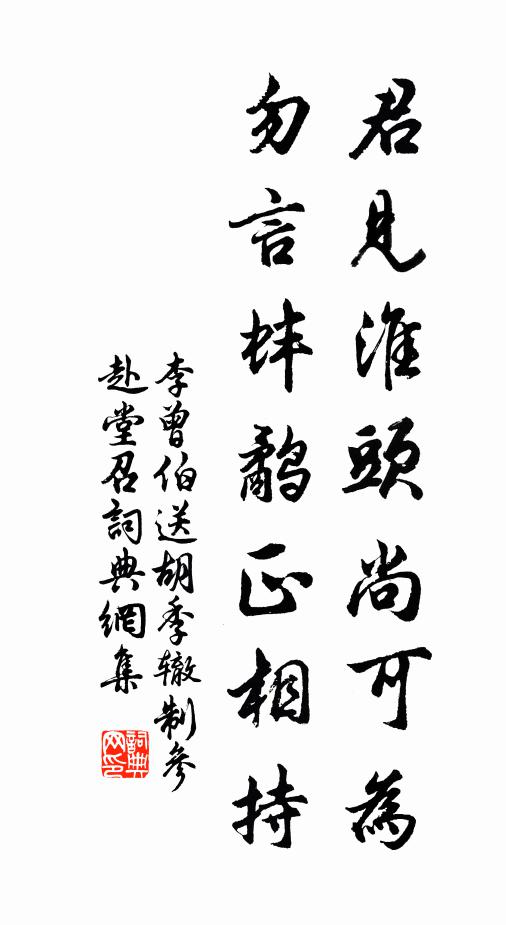 君見淮頭尚可為
勿言蚌鷸正相持
李曾伯送胡季辙制參
赴堂召詞典網集
詞典
网印